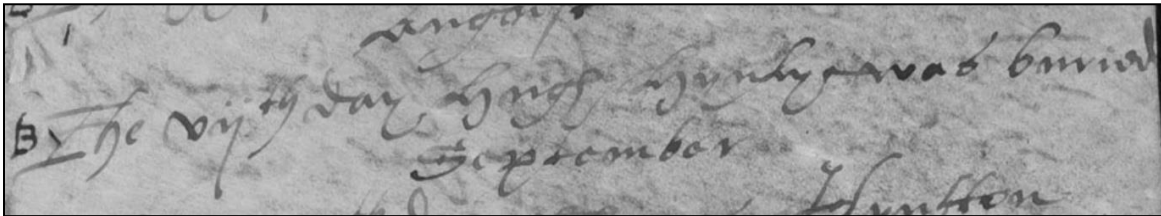 August
B The vijth day Hugh Hynlye was buried
September